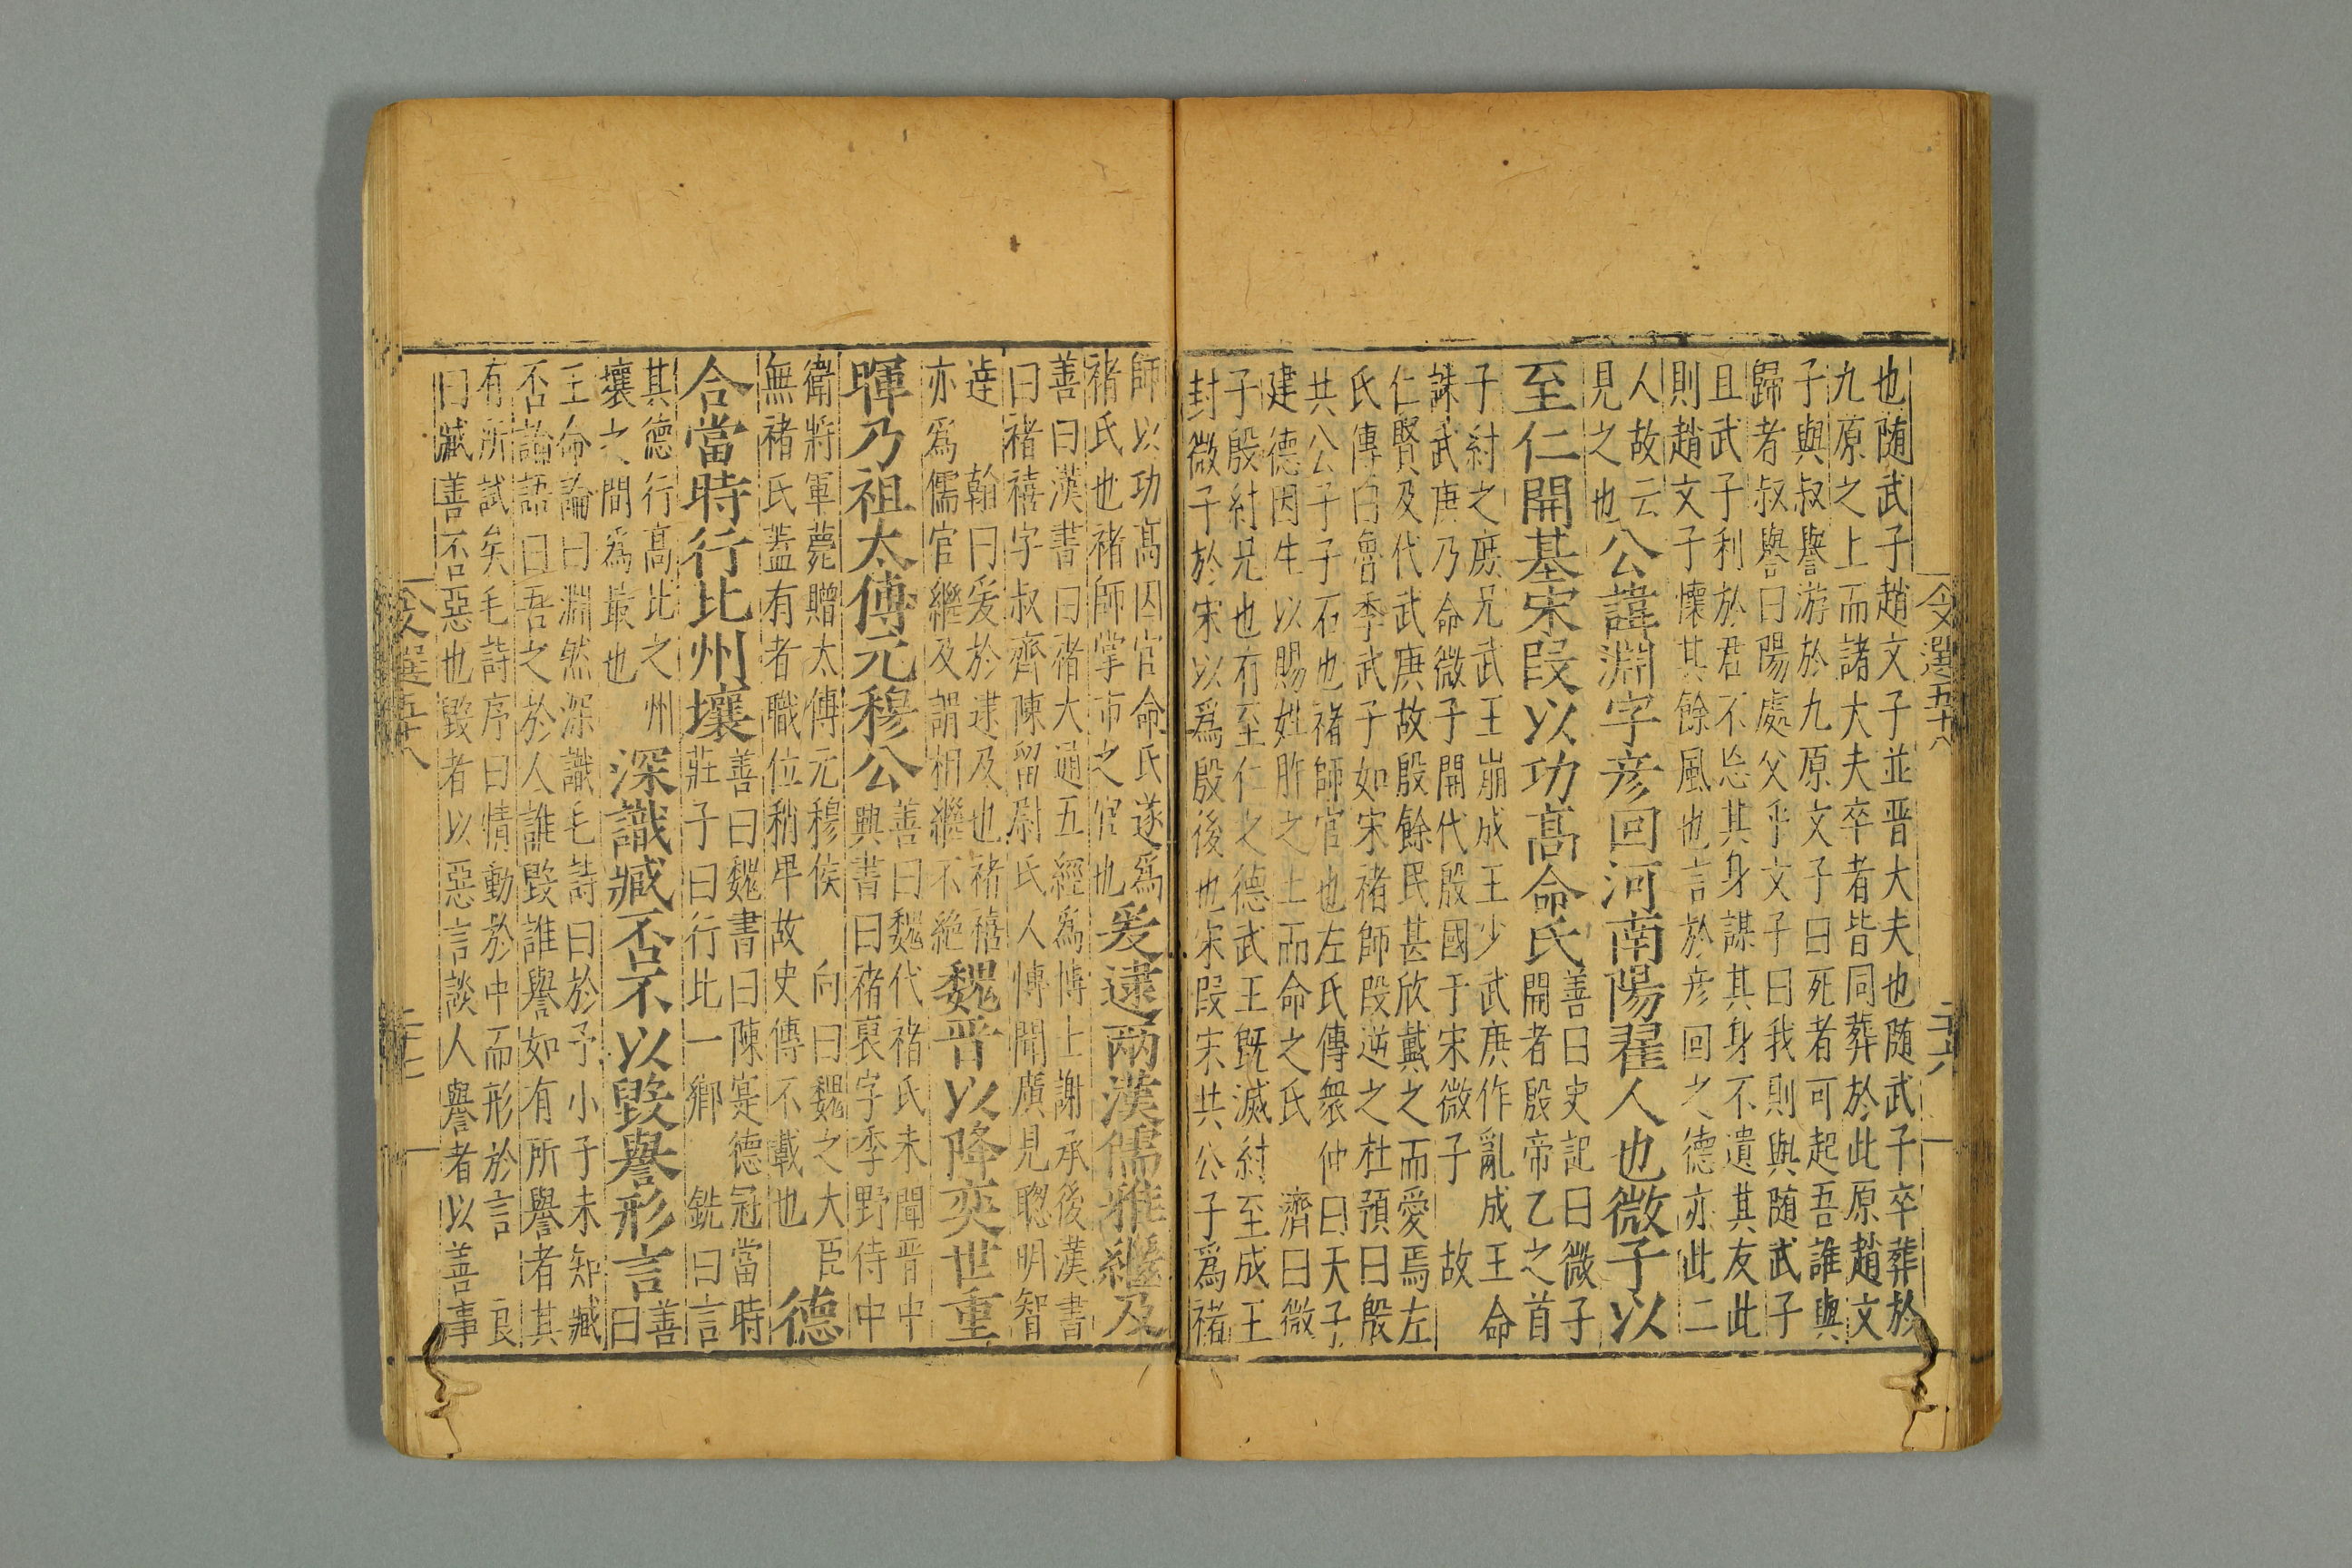 也随武子趙文子並晋大夫也随武子卒葬於
九原之上而諸大夫卒者皆同葬於此原趙文
子與叔譽游於九原文子曰死者可起吾誰與
歸者叔譽曰陽處父乎文子曰我則與随武子
且武子利於君不忘其身謀其身不遺其友此
則趙文子懷其餘風也言於彦回之德亦此二
人故云
見之也
公諱淵字彦回河南陽翟人也微子以
至仁開基宋段以功髙命氏
善曰史記曰微子
開者殷帝乙之首
子紂之庶兄武王崩成王少武庚作亂成王命
誅武庚乃命微子開代殷國于宋微子故
仁賢及代武庚故殷餘民甚欣戴之而愛焉左
氏傳曰魯季武子如宋褚師段逆之杜預曰殷
共公子子石也褚師官也左氏傳衆仲曰天子
建德因生以賜姓胙之土而命之氏濟曰微
子殷紂兄也有至仁之德武王旣滅紂至成王
封微子於宋以爲殷後也宋段宋共公子爲褚
文選五十八
二十六
師以功髙因官命氏遂爲
褚氏也褚師掌市之官也
爰逮兩漢儒雅繼及
善曰漢書曰禇大通五經爲博上謝承後漢書
曰褚禧字叔齊陳留尉氏人博聞廣見聦明智
逹翰曰爰於逮及也褚禧
亦爲儒官繼及謂相繼不絶
魏晋以降奕世重
暉乃祖太傅元穆公
善曰魏代禇氏未聞晋中
興書曰禇裒字季野侍中
衛將軍薨贈太傅元穆侯向曰魏之大臣
無褚氏蓋有者職位稍卑故史傳不載也
德
合當時行比州壤
善曰魏書曰陳寔德冠當時
莊子曰行比一鄉銑曰言
其德行髙比之州
壤之間爲最也
深識臧否不以毀譽形言
善
曰
王命論曰淵然深識毛詩曰於乎小子未知臧
否論語曰吾之於人誰毀誰譽如有所譽者其
有所試矣毛詩序曰情動於中而形於言良
曰臧善否惡也毀者以惡言談人譽者以善事
文選五十八
二十七